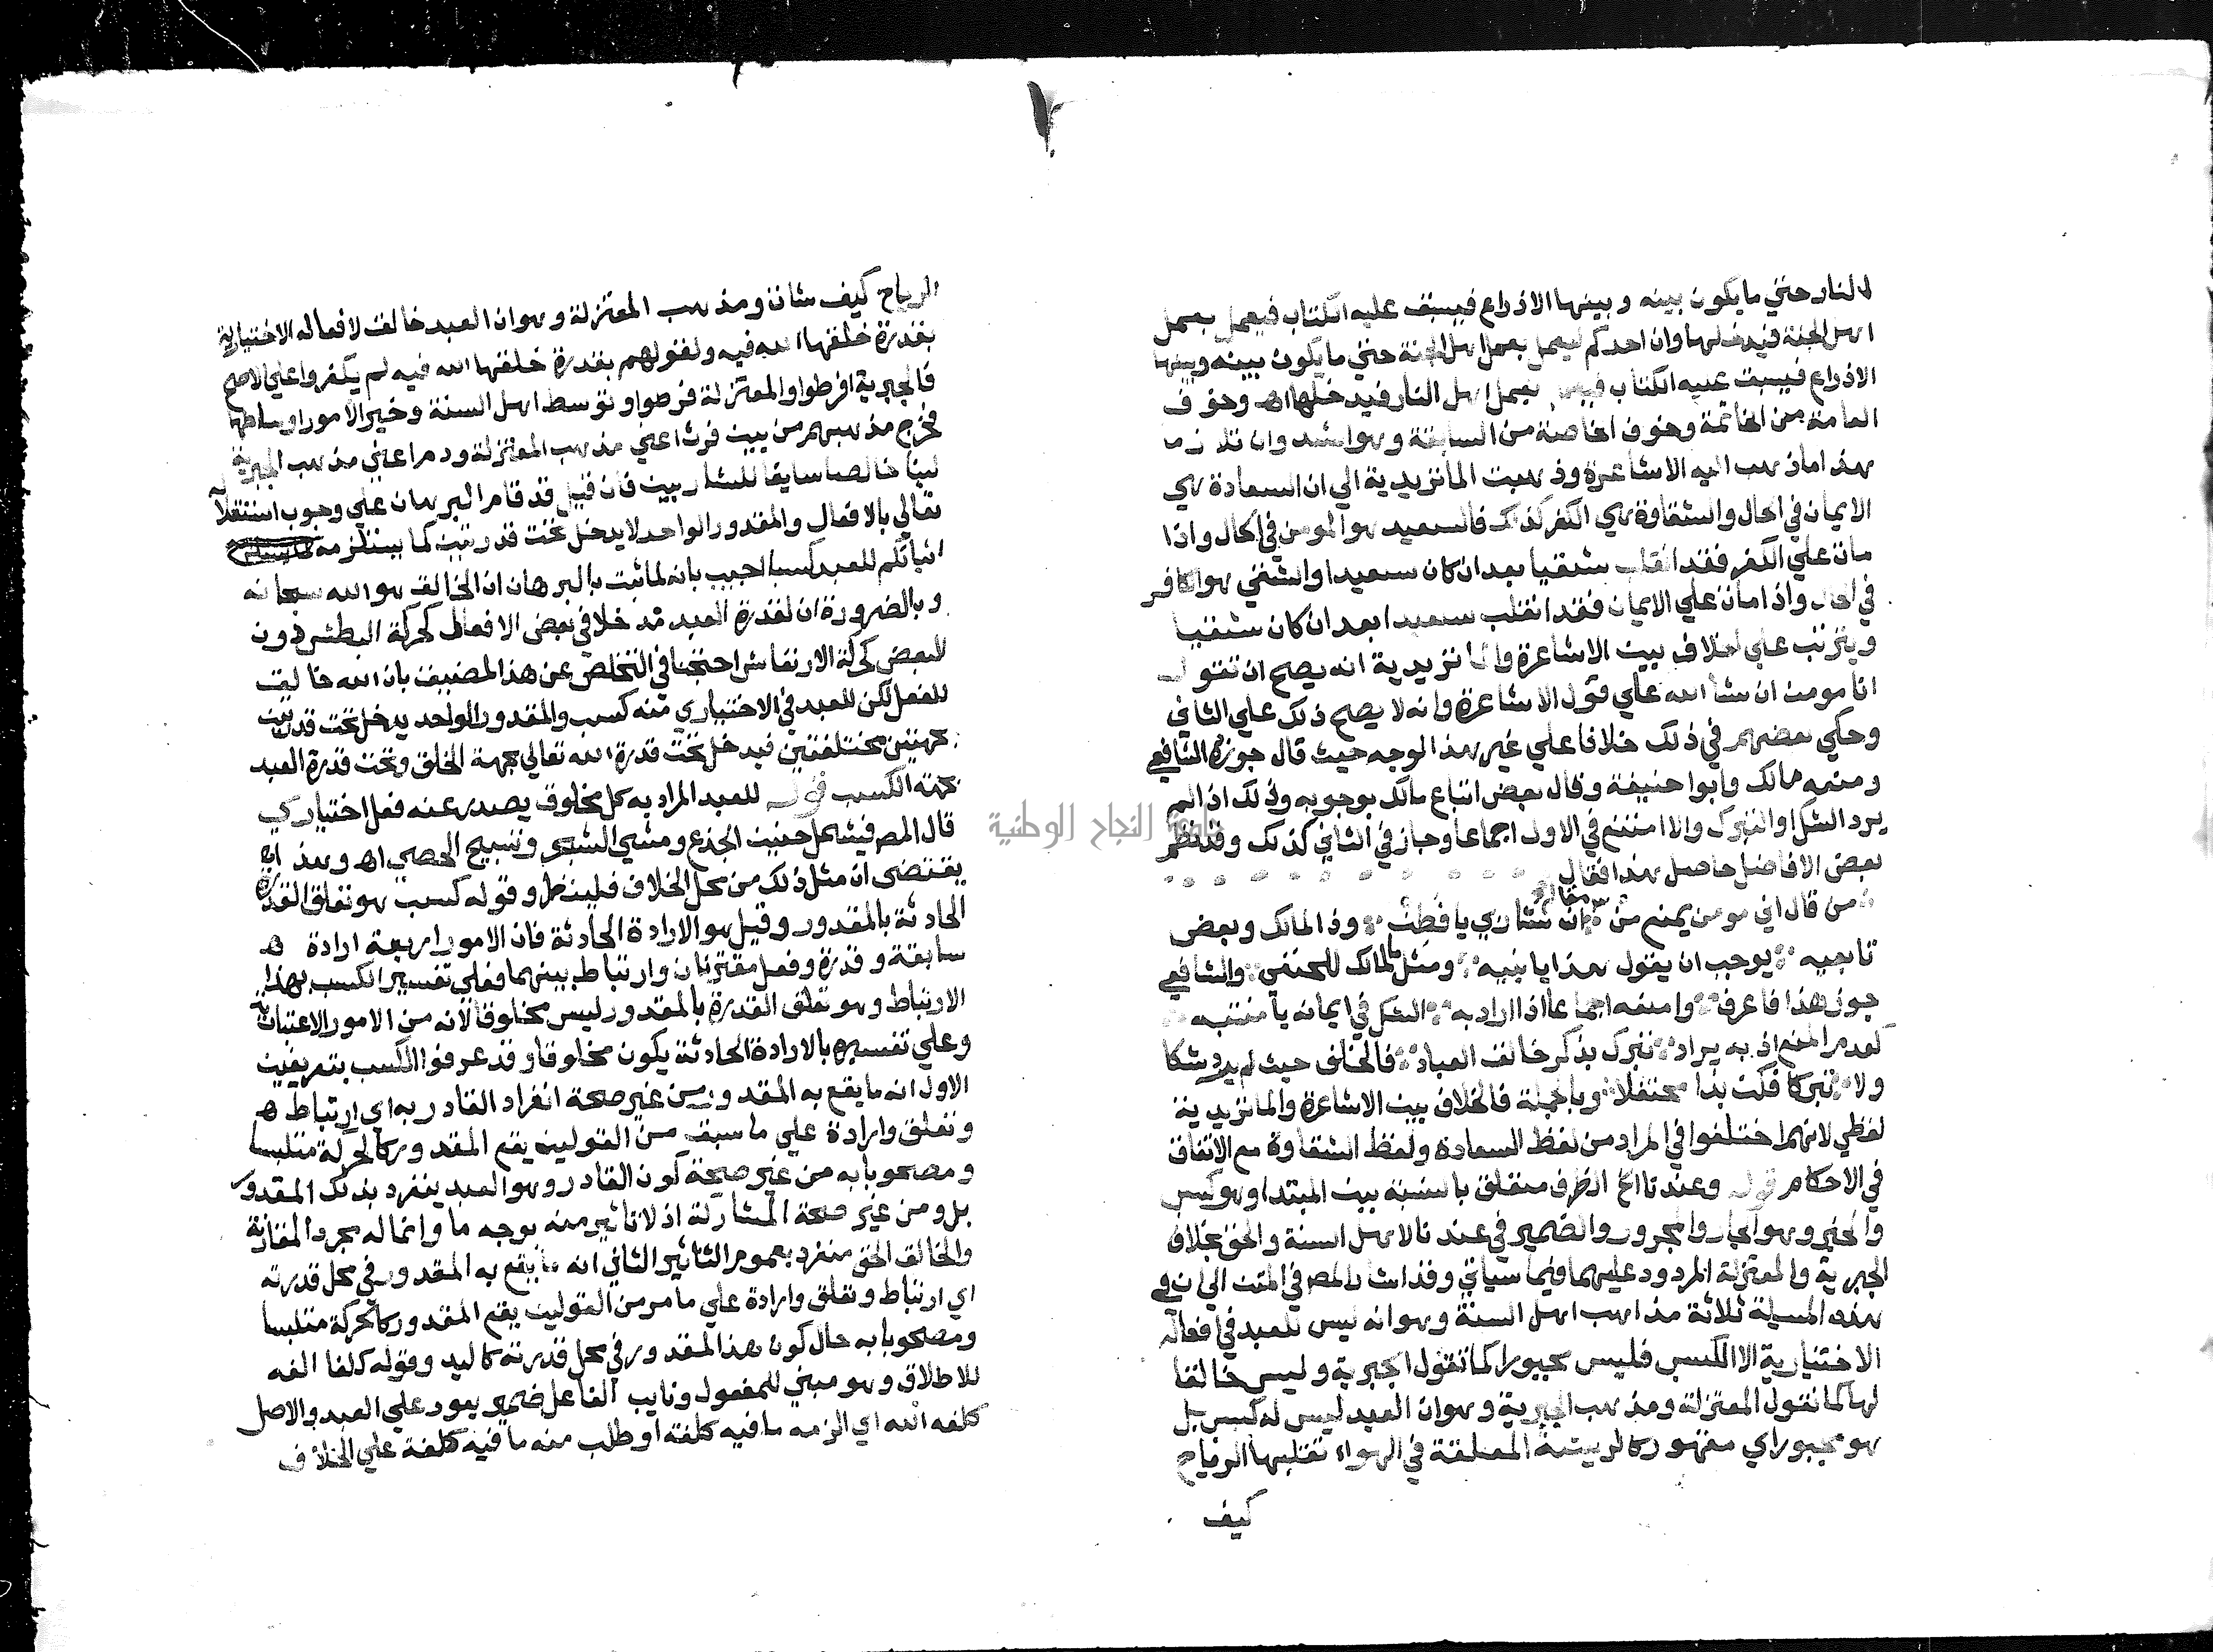 النار حتي ما يكون بينه وبينها الا ذراع فيسبق عليه الكتاب فيعمل بعمل
اهل الجنة فيدخلها وان احدكم ليعمل بعمل اهل الجنة حتي ما يكون بينه وبينها
الا ذراع فيسبق عليه الكتاب فيعمل بعمل اهل النار فيدخلها اه وخوف
العامة من الخاتمة وخوف الخاصة من السابقة وهو اشد وان تلازما
هذا ما ذهب اليه الاشاعرة وذهبت الماتريدية الي ان السعادة هي
الايمان في الحال والشقاوة هي الكفر كذلك فالسعيد هو المومن في الحال واذا
مات علي الكفر فقد انقلب شقيا بعد ان كان سعيدا والشقي هو الكافر
في الحال واذا مات علي الايمان فقد انقلب سعيدا بعد ان كان شقيا
ويترتب علي الخلاف بين الاشاعرة والماتريدية انه يصح ان تقول
انا مومن ان شا الله علي قول الاشاعرة وانه لا يصح ذلك علي الثاني
وحكي بعضهم في ذلك خلافا علي غير هذا الوجه حيث قال جوزه الشافعي
ومنعه مالك وابوا حنيفة وقال بعض اتباع مالك بوجوبه وذلك اذا لم
يرد الشك او التبرك والا امتنع في الاول اجماعا وجاز في الثاني كذلك وقد نظم
بعض الافاضل حاصل هذا فقال
من قال اني مومن يمنع من مقاله ان شا ربي يا فطن وذا لمالك وبعض
تابعيه يوجب ان يقول هذا يا نبيه ومثل مالك للحنفي والشافعي
جوز هذا فاعرف وامنعه اجماعا اذا اراد به الشك في ايمانه يا منتبه
كعدم المنع اذ به يراد تبرك بذكر خالق العباد فالخلف حيث لم يرد شكا
ولا تبركا فكن بذا محتفلا وبالجملة فالخلاف بين الاشاعرة والماتريدية
لفظي لانهم اختلفوا في المراد من لفظ السعادة ولفظ الشقاوة مع الاتفاق
في الاحكام قوله وعندنا الخ الظرف متعلق بالنسبة بين المبتدا وهو كسب
والخبر وهو الجار والمجرور والضمير في عندنا لاهل السنة والحق بخلاف
الجبرية والمعتزلة المردود عليهما فيما سياتي وقد اشار المص في المتن الي ان في
هذه المسيلة ثلاثة مذاهب اهل السنة وهو انه ليس للعبد في افعاله
الاختيارية الا الكسب فليس مجبورا كما تقول الجبرية وليس خالقا
لها كما تقول المعتزلة ومذهب الجبرية وهو ان العبد ليس له كسب بل
هو مجبور اي مقهور كالريشة المعلقة في الهواء تقلبها الرياح
كيف
الرياح كيف شات ومذهب المعتزلة وهو ان العبد خالق لافعاله الاختيارية
بقدرة خلقها الله فيه ولقولهم بقدرة خلقها الله فيه لم يكفروا علي الاصح
فالجبرية افرطوا والمعتزلة فرطوا وتوسط اهل السنة وخير الامور اوساطها
فخرج مذهبهم من بين فرث اعني مذهب المعتزلة ودم اعني مذهب الجبرية
لبنا خالصا سايغا للشاربين فان قيل قد قام البرهان علي وجوب استقلاله
تعالي بالافعال والمقدور الواحد لا يدخل تحت قدرتين كما يستلزمه
اثباتكم للعبد كسبا اجيب بانه لما ثبت بالبرهان ان الخالق هو الله سبحانه
وبالضرورة ان لقدرة العبد مدخلا في بعض الافعال كحركة البطش دون
البعض كحركة الارتعاش احتجنا في التخلص عن هذا المضيق بان الله خالق
للفعل لكن للعبد في الاختياري منه كسب والمقدور الواحد يدخل تحت قدرتين
بجهتين مختلفتين فيدخل تحت قدرة الله تعالي بجهة الخلق وتحت قدرة العبد
بجهة الكسب قوله للعبد المراد به كل مخلوق يصدر عنه فعل اختياري
قال المص فيشمل حنين الجذع ومشي الشجر وتسبيح الحصي اه وهذا
يقتضي ان مثل ذلك من محل الخلاف فلينظر وقوله كسب هو تعلق القدرة
الحادثة بالمقدور وقيل هو الارادة الحادثة فان الامور اربعة ارادة
سابقة وقدرة وفعل مقترنان وارتباط بينهما فعلي تفسير الكسب بهذا
الارتباط وهو تعلق القدرة بالمقدور ليس مخلوقا لانه من الامور الاعتبارية
وعلي تفسيره بالارادة الحادثة يكون مخلوقا وقد عرفوا الكسب بتعريفين
الاول انه ما يقع به المقدور من غير صحة انفراد القادر به اي ارتباط
وتعلق وارادة علي ما سبق من القولين يقع المقدور كالحركة متلبسا
ومصحوبا به من غير صحة كون القادر وهو العبد ينفرد بذلك المقدور
بل ومن غير صحة المشاركة اذ لا تاثير منه بوجه ما وانما له مجرد المقارنة
والخالق الحق منفرد بعموم التاثير الثاني انه ما يقع به المقدور في محل قدرته
اي ارتباط وتعلق وارادة علي ما مر من القولين يقع المقدور كالحركة متلبسا
ومصحوبا به حال كون هذا المقدور في محل قدرته كاليد وقوله كلفا الفه
للاطلاق وهو مبني للمفعول ونايب الفاعل ضمير يعود علي العبد والاصل
كلفه الله اي الزمه ما فيه كلفة او طلب منه ما فيه كلفة علي الخلاف
جامعة النجاح الوطنية